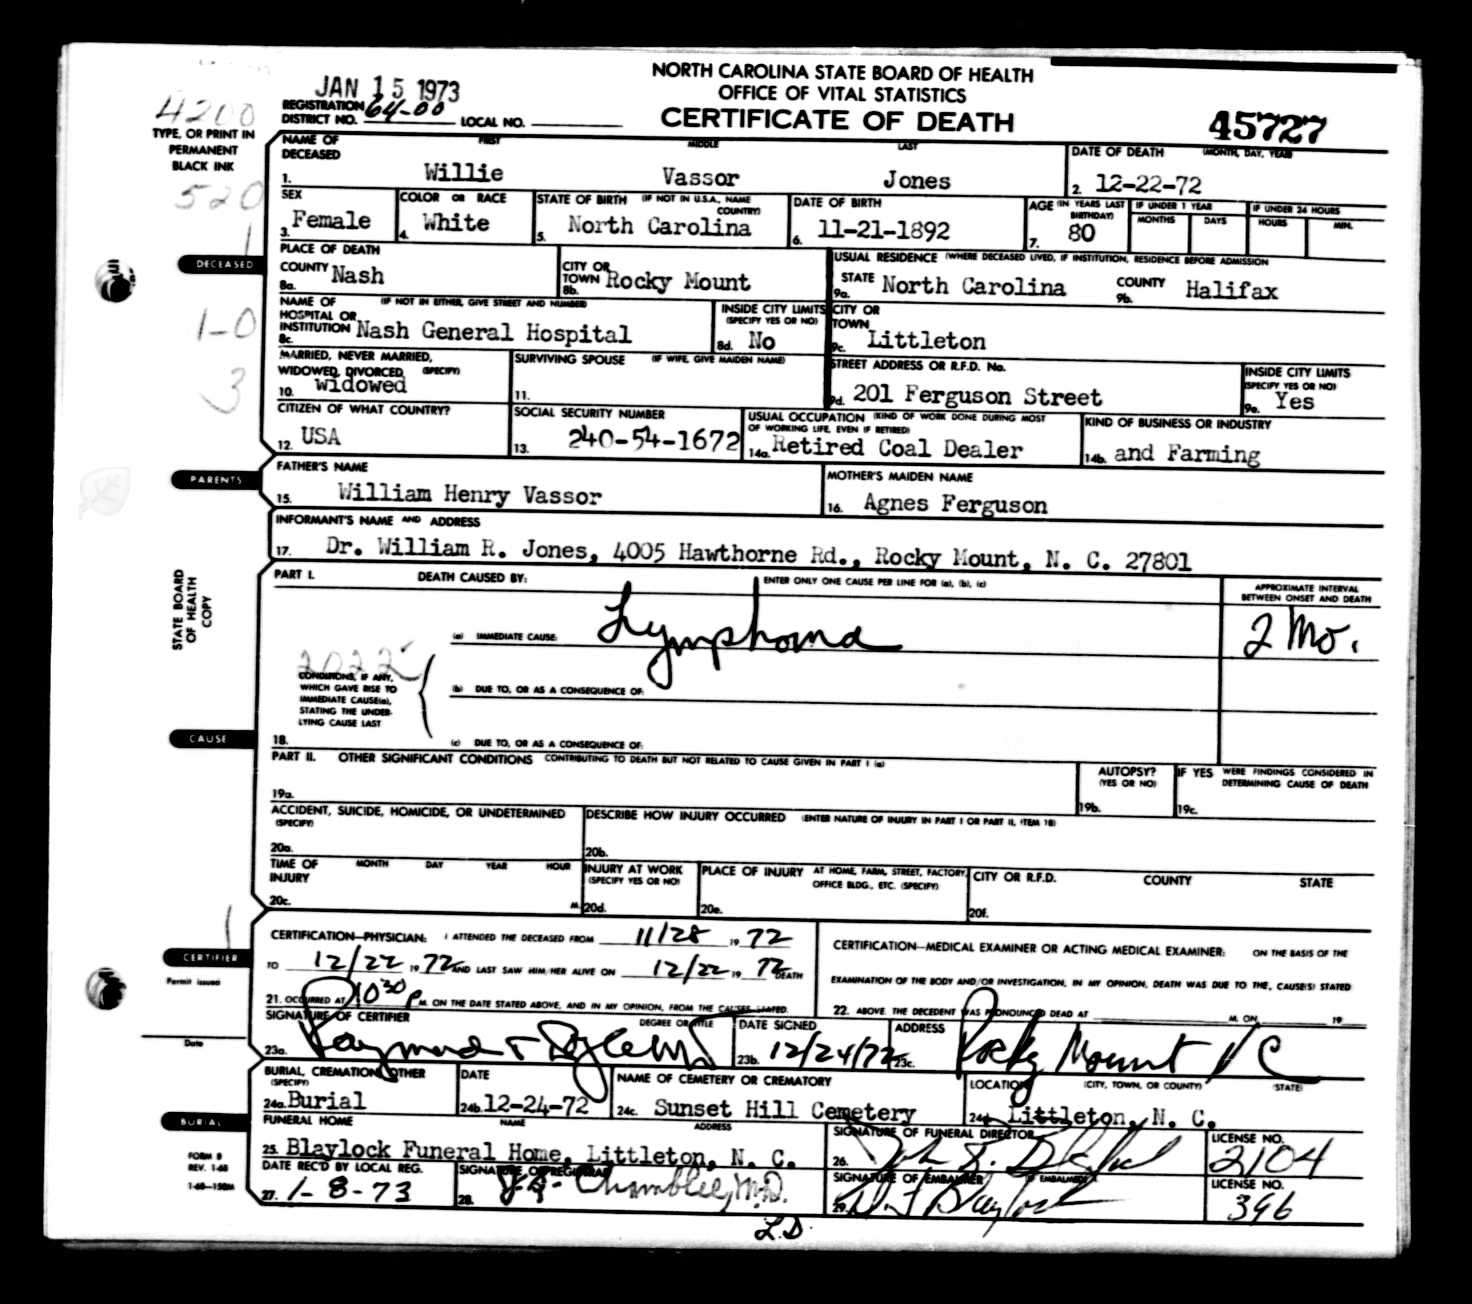 NORTH CAROLINA STATE BOARD OF HEALTH
OFFICE OF VITAL STATISTICS
CERTIFICATE OF DEATH
JAN 15 1973
45727
4200
REGISTRATION DISTRICT NO. 64-00 LOCAL NO.
TYPE, OR PRINT IN
PERMANENT
BLACK INK
520
1
DECEASED
1-0
3
NAME OF DECEASED FIRST MIDDLE LAST
1. Willie Vassor Jones
DATE OF DEATH (MONTH, DAY, YEAR)
2. 12-22-72
SEX
3. Female
COLOR OR RACE
4. White
STATE OF BIRTH (IF NOT IN U.S.A., NAME COUNTRY)
5. North Carolina
DATE OF BIRTH
6. 11-21-1892
AGE (IN YEARS LAST BIRTHDAY)
7. 80
IF UNDER 1 YEAR
MONTHS DAYS
IF UNDER 24 HOURS
HOURS MIN.
PLACE OF DEATH
COUNTY
8a. Nash
CITY OR TOWN
8b. Rocky Mount
USUAL RESIDENCE (WHERE DECEASED LIVED, IF INSTITUTION, RESIDENCE BEFORE ADMISSION
STATE
9a. North Carolina
COUNTY
9b. Halifax
NAME OF HOSPITAL OR INSTITUTION (IF NOT IN EITHER, GIVE STREET AND NUMBER)
8c. Nash General Hospital
INSIDE CITY LIMITS
(SPECIFY YES OR NO)
8d. No
CITY OR TOWN
9c. Littleton
MARRIED, NEVER MARRIED,
WIDOWED, DIVORCED (SPECIFY)
10. Widowed
SURVIVING SPOUSE (IF WIFE, GIVE MAIDEN NAME)
11.
STREET ADDRESS OR R.F.D. No.
9d. 201 Ferguson Street
INSIDE CITY LIMITS
(SPECIFY YES OR NO)
9e. Yes
CITIZEN OF WHAT COUNTRY?
12. USA
SOCIAL SECURITY NUMBER
13. 240-54-1672
USUAL OCCUPATION (KIND OF WORK DONE DURING MOST
OF WORKING LIFE, EVEN IF RETIRED)
14a. Retired Coal Dealer
KIND OF BUSINESS OR INDUSTRY
14b. and Farming
PARENTS
FATHER'S NAME
15. William Henry Vassor
MOTHER'S MAIDEN NAME
16. Agnes Ferguson
INFORMANT'S NAME AND ADDRESS
17. Dr. William R. Jones, 4005 Hawthorne Rd., Rocky Mount, N. C. 27801
STATE BOARD
OF HEALTH
COPY
PART I. DEATH CAUSED BY: ENTER ONLY ONE CAUSE PER LINE FOR (a), (b), (c)
APPROXIMATE INTERVAL
BETWEEN ONSET AND DEATH
(a) IMMEDIATE CAUSE: Lymphoma 2 Mo.
2022
CONDITIONS, IF ANY,
WHICH GAVE RISE TO
IMMEDIATE CAUSE(a),
STATING THE UNDER-
LYING CAUSE LAST
(b) DUE TO, OR AS A CONSEQUENCE OF:
CAUSE
18. (c) DUE TO, OR AS A CONSEQUENCE OF:
PART II. OTHER SIGNIFICANT CONDITIONS CONTRIBUTING TO DEATH BUT NOT RELATED TO CAUSE GIVEN IN PART I (a)
19a.
AUTOPSY?
(YES OR NO)
19b.
IF YES WERE FINDINGS CONSIDERED IN
DETERMINING CAUSE OF DEATH
19c.
ACCIDENT, SUICIDE, HOMICIDE, OR UNDETERMINED
(SPECIFY)
20a.
DESCRIBE HOW INJURY OCCURRED (ENTER NATURE OF INJURY IN PART I OR PART II, ITEM 18)
20b.
TIME OF INJURY MONTH DAY YEAR HOUR
20c. M.
INJURY AT WORK
(SPECIFY YES OR NO)
20d.
PLACE OF INJURY AT HOME, FARM, STREET, FACTORY,
OFFICE BLDG., ETC. (SPECIFY)
20e.
CITY OR R.F.D. COUNTY STATE
20f.
1
CERTIFIER
Permit issued
Date
CERTIFICATION—PHYSICIAN: I ATTENDED THE DECEASED FROM 11/28 19 72
TO 12/22 19 72 AND LAST SAW HIM/HER ALIVE ON 12/22 19 72 DEATH
21. OCCURRED AT 10 30 P M. ON THE DATE STATED ABOVE, AND IN MY OPINION, FROM THE CAUSES STATED.
CERTIFICATION—MEDICAL EXAMINER OR ACTING MEDICAL EXAMINER: ON THE BASIS OF THE
EXAMINATION OF THE BODY AND/OR INVESTIGATION, IN MY OPINION, DEATH WAS DUE TO THE, CAUSE(S) STATED
22. ABOVE. THE DECEDENT WAS PRONOUNCED DEAD AT M. ON 19
SIGNATURE OF CERTIFIER DEGREE OR TITLE
23a. Raymond
DATE SIGNED
23b. 12/24/72
ADDRESS
23c. Rocky Mount N C
BURIAL, CREMATION, OTHER
(SPECIFY)
24a. Burial
DATE
24b. 12-24-72
NAME OF CEMETERY OR CREMATORY
24c. Sunset Hill Cemetery
LOCATION (CITY, TOWN, OR COUNTY) (STATE)
24d. Littleton, N. C.
BURIAL
FUNERAL HOME NAME ADDRESS
25. Blaylock Funeral Home, Littleton, N. C.
SIGNATURE OF FUNERAL DIRECTOR
26.
LICENSE NO.
2104
FORM 8
REV. 1-68
1-68—150M
DATE REC'D BY LOCAL REG.
27. 1-8-73
SIGNATURE OF REGISTRAR
28. Chamblee, M.D.
L.D.
SIGNATURE OF EMBALMER (IF EMBALMED)
29. Blaylock
LICENSE NO.
396